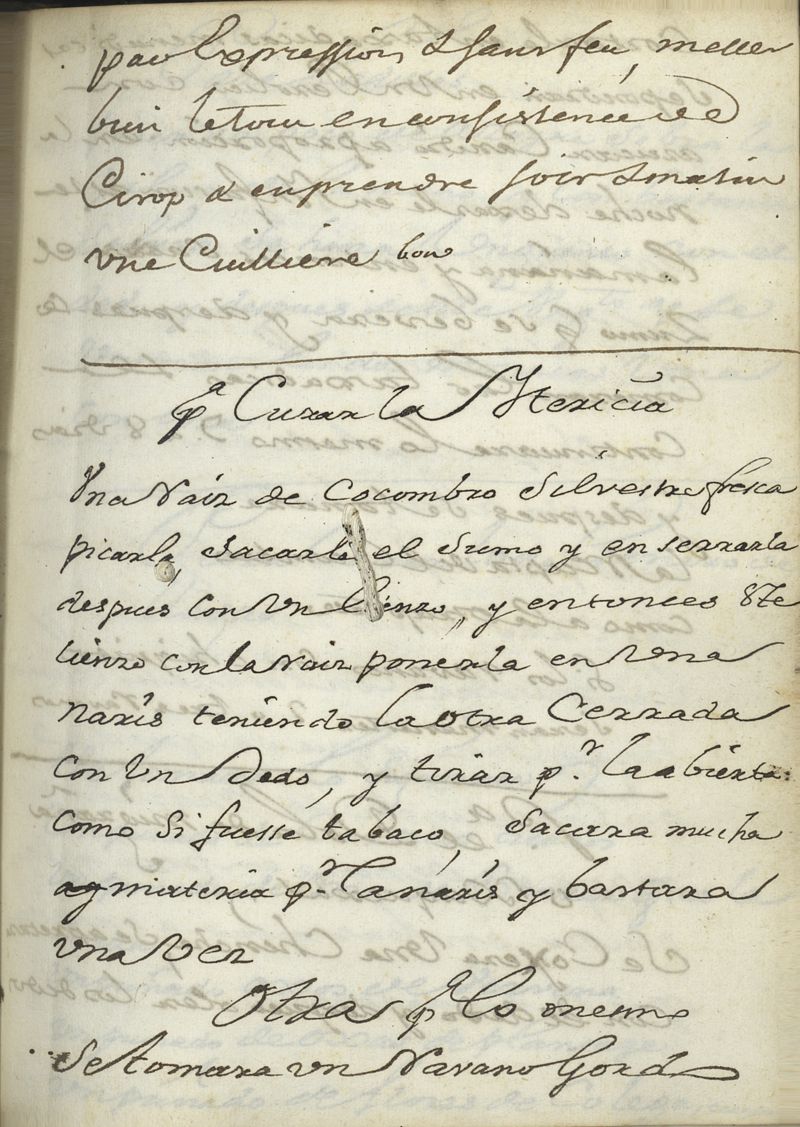 par l'expression & sans feu, mettez
bien le tout en consistence de
Cirop & en prendre soir & matin
une Cuilliere bon
pa Curar la Itericia
Una Raiz de Cocombro Silvestre fresca
picarla, Sacarle el Sumo y enserrarla
despues Con Un lienzo, y entonces Este
lienzo con la Raiz ponerla en Una
Naris teniendo la otra Cerrada
Con Un Dedo, y tirar pr. la abierta
Como Si fuesse tabaco, Sacara mucha
materia pr. la naris y bastara
una Vez
Otra pa lo mesmo
Se tomara un Navano Gordo